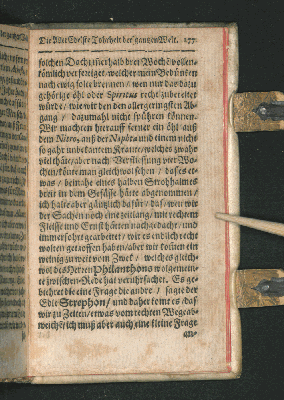 Die Aller Edelste Thorheit der gantzen Welt. 177
solchen Dacht ist er halb drey Wochē vollen-
kömlich verfertiget, welcher meinē Bedüncken
nach ewig solte brennen / wen nur das dazu
gehörige öhl oder Spiritus recht zubereitet
würde / wie wir den den allergeringsten Ab-
gang / dazumahl nicht spühren können.
Wir machten hierauff ferner ein öhl auß
dem Nitro, auß der Napta und einem nicht
so gahr unbekantem Kraute / welches zwahr
viel thäte / aber nach Verfliessung vier Wo-
chen / könte man gleichwol sehen / daß es et-
was / beinahe eines halben Strohhalmes
breit in dem Gefäße hätte abgenommen /
ich halte aber gäntzlich dafür / daß / wen wir
der Sachen noch eine zeitlang / mit rechtem
Fleisse und Ernst hätten nachgedacht / und
immerfohrt gearbeitet / wir es endlich recht
wolten getroffen haben / aber wir kohmen ein
wenig zu weit vom Zwek / welches gleich-
wol des Herren Philanthons wolgemein-
te zwischen-Rede hat veruhrsachet. Es ge-
biehret die eine Frage die andre / sagte der
Edle Strephon / und daher komt es / daß
wir zu Zeiten / etwas vom rechten Wege ab-
weichē / ich muß aber auch eine kleine Frage